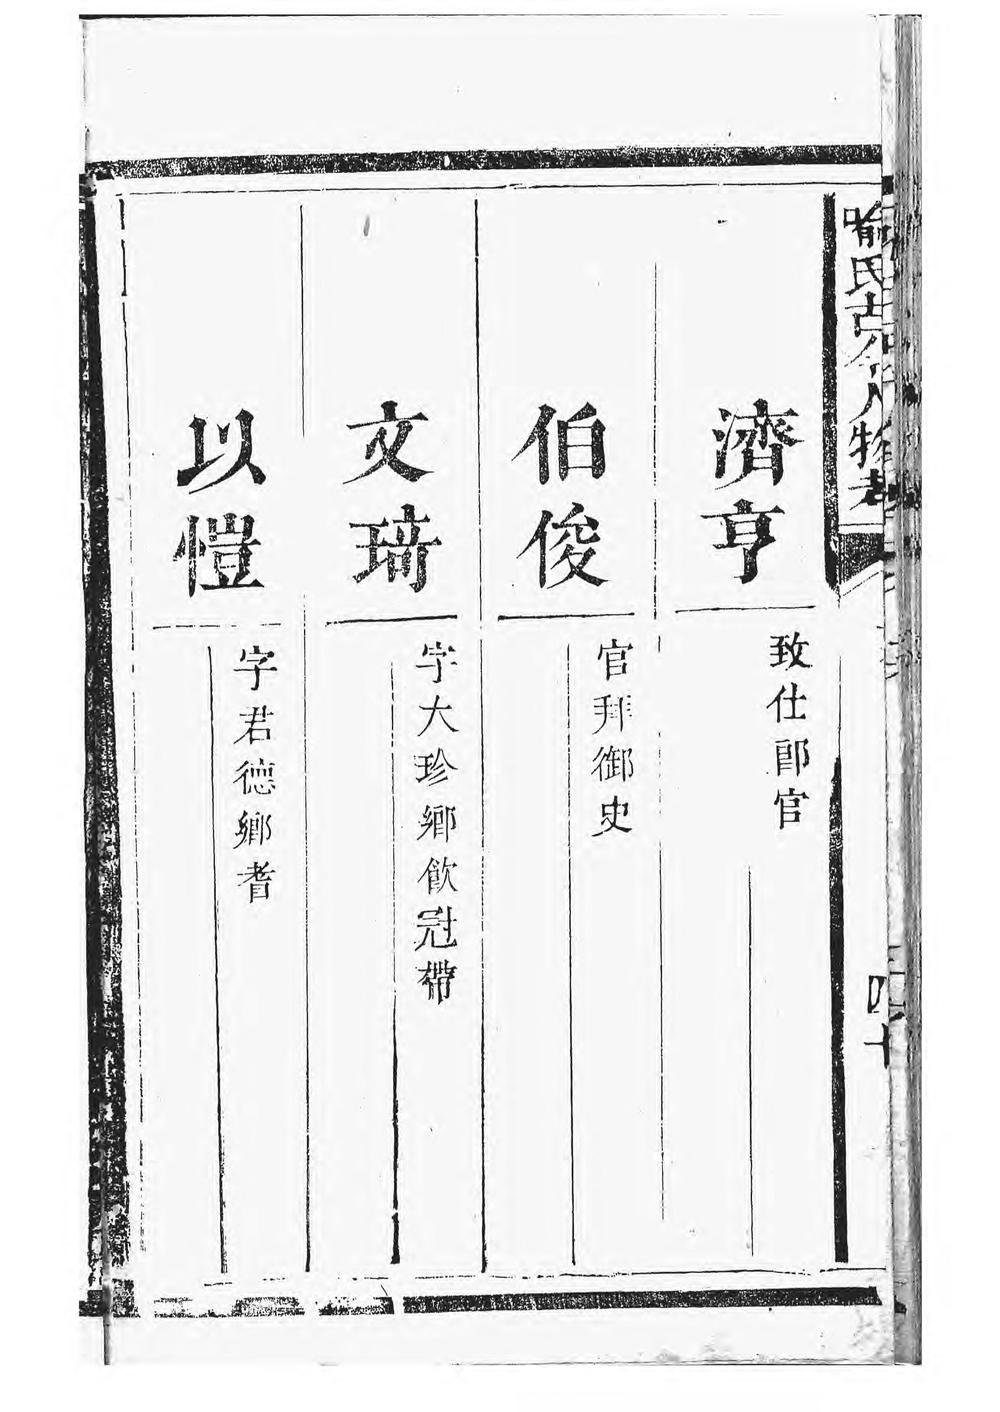 喻氏古今人物考
濟亨
致仕郎官
伯俊
官拜御史
文琦
字大珍鄉飲冠帶
以愷
字君德鄉耆
四十